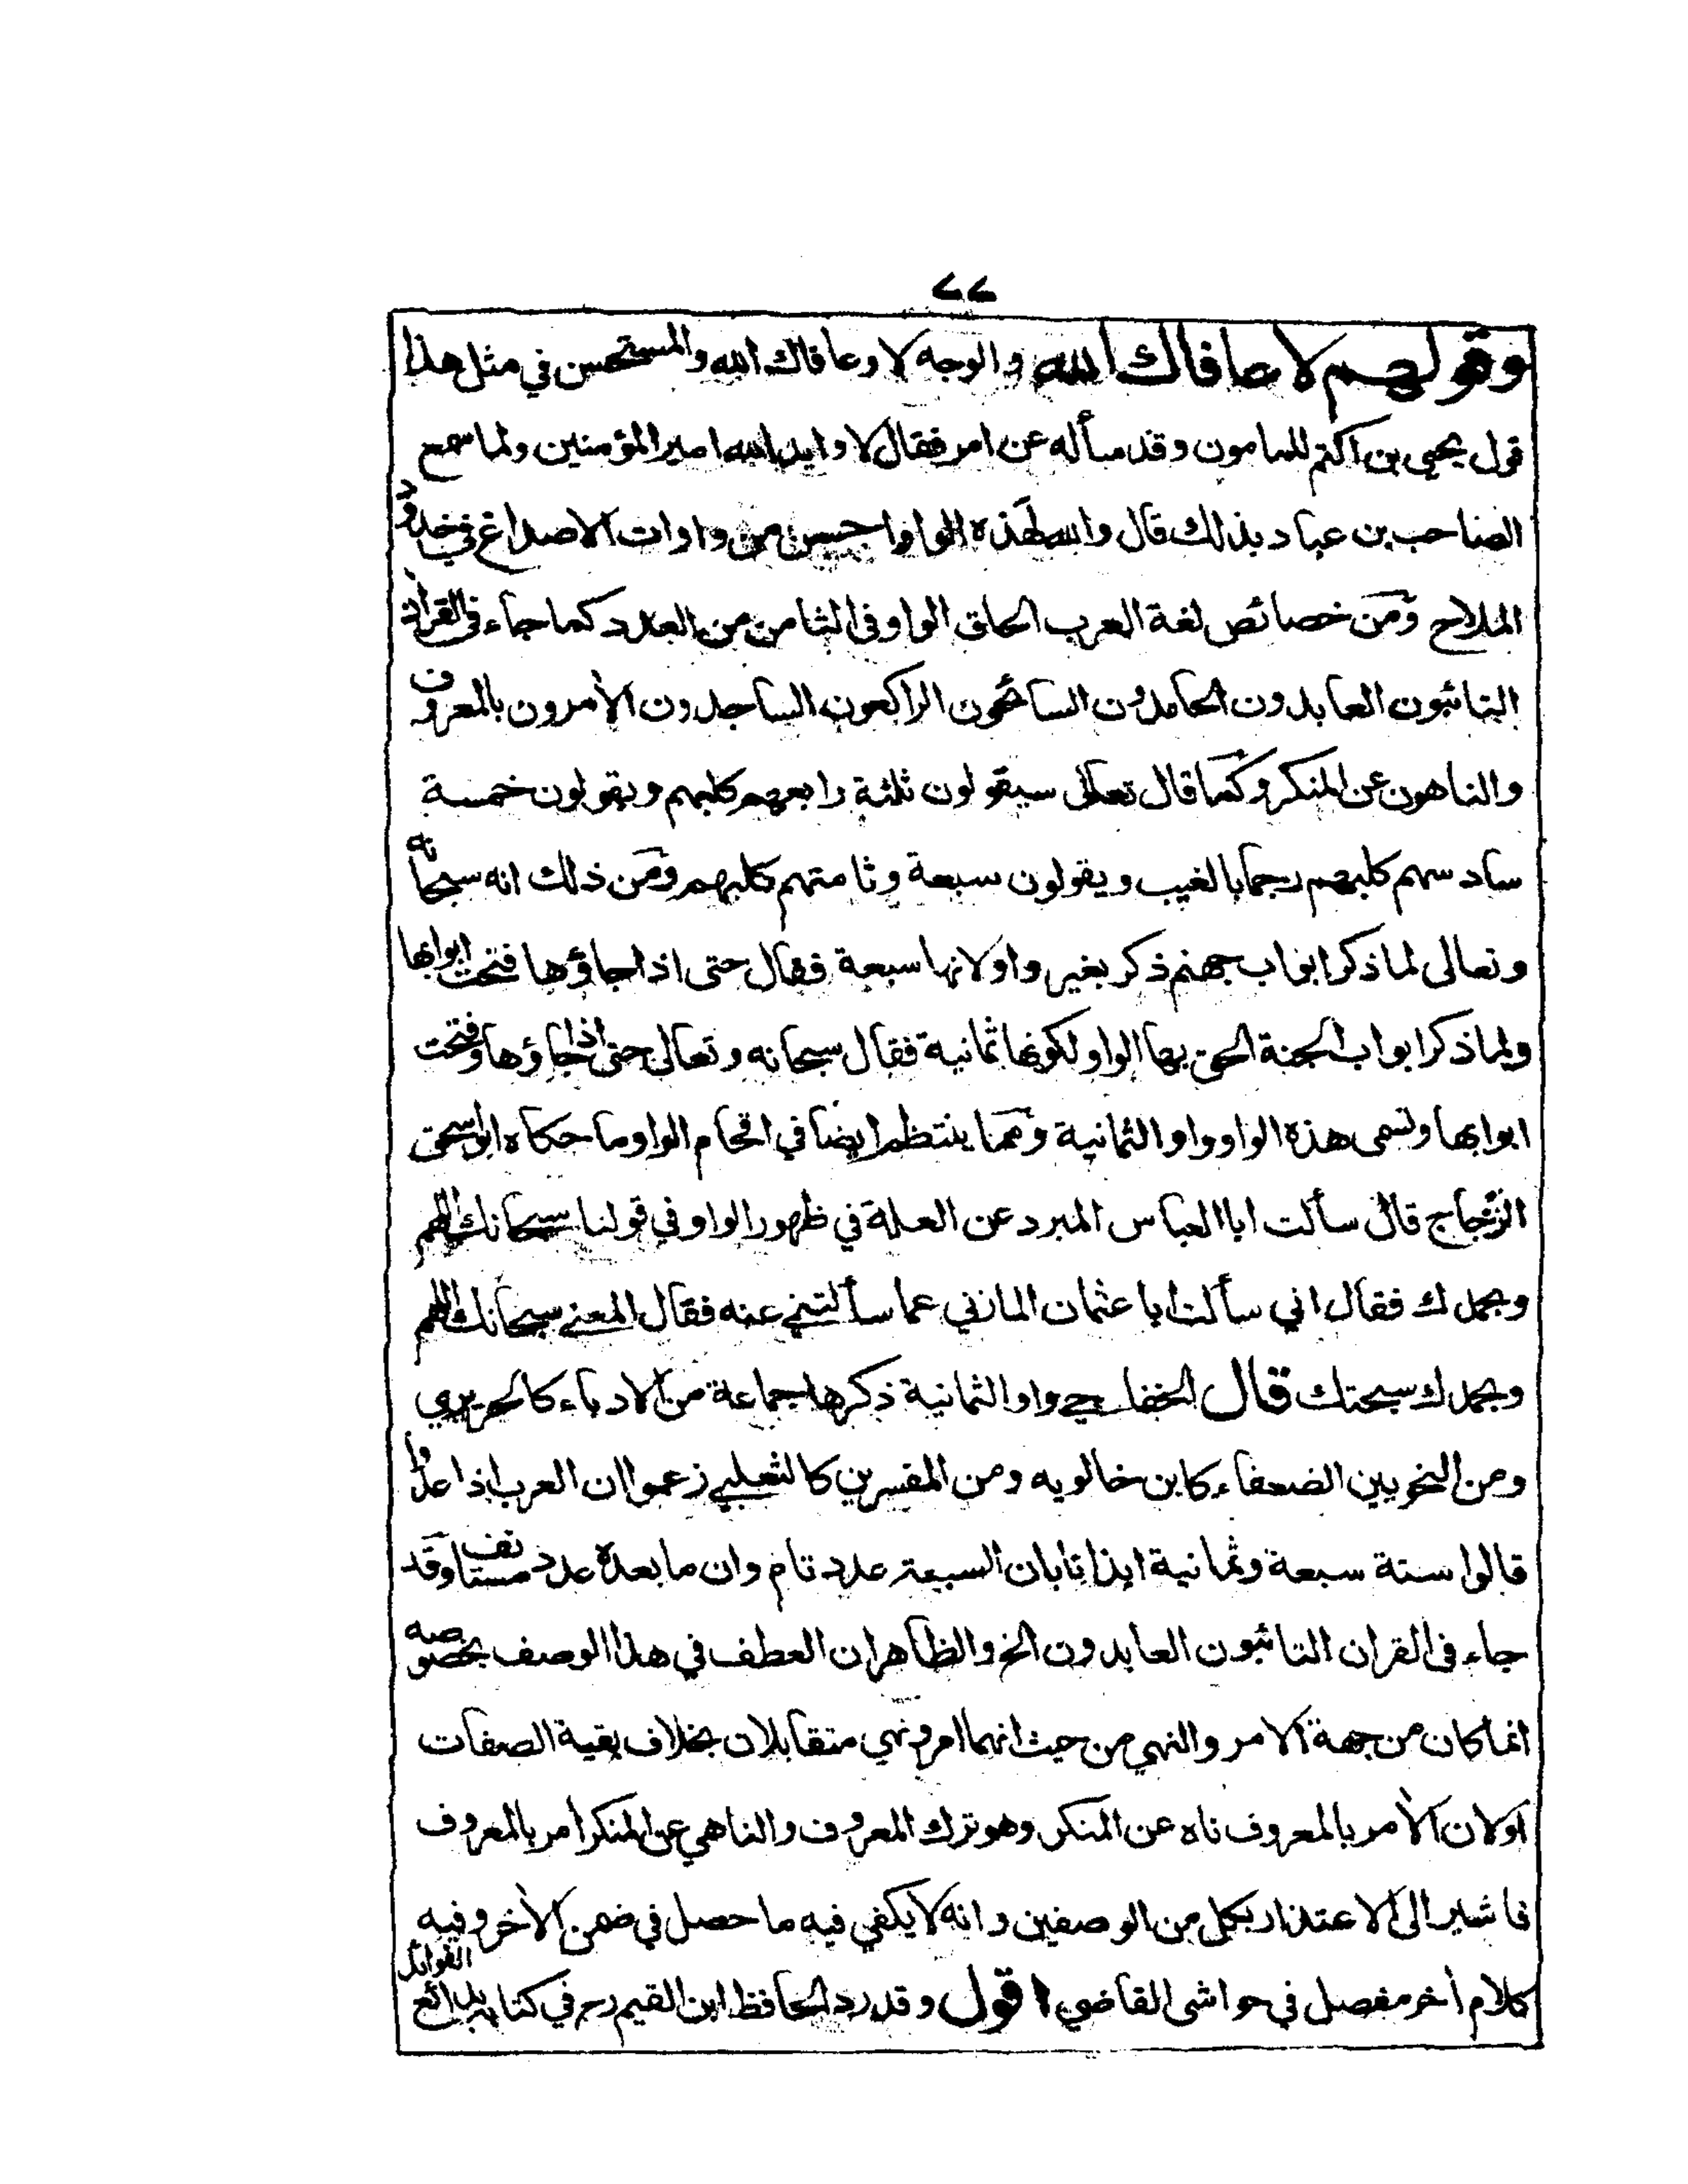 ٧٧
وقولهم لا عافاك الله والوجه لا وعافاك الله والمستحسن في مثل هذا
قول يحيى بن اكثم للمامون وقد سأله عن امر فقال لا وايد الله امير المؤمنين ولما سمع
الصاحب بن عباد بذلك قال والله لهذه الواو احسن من واوات الاصداغ في خدود
الملاح ومن خصائص لغة العرب الحاق الواو في الثامن من العدد كما جاء في القرأن
التائبون العابدون الحامدون السائحون الراكعون الساجدون الأمرون بالمعروف
والناهون عن المنكر وكما قال تعالى سيقولون ثلثة رابعهم كلبهم ويقولون خمسة
سادسهم كلبهم رجما بالغيب ويقولون سبعة وثامنهم كلبهم ومن ذلك انه سبحانه
وتعالى لما ذكر ابواب جهنم ذكر بغير واو لانها سبعة فقال حتى اذا جاؤها فتحت ابوابها
ولما ذكر ابواب الجنة الحق بها الواو لكونها ثمانية فقال سبحانه وتعالى حتى اذا جاؤها وفتحت
ابوابها وتسمى هذه الواو واو الثمانية ومما ينتظم ايضا في اقحام الواو ما حكاه ابو اسحق
الزجاج قال سألت ابا العباس المبرد عن العلة في ظهور الواو في قولنا سبحانك اللهم
وبحمدك فقال اني سألت ابا عثمان المازني عما سألتني عنه فقال المعنے سبحانك اللهم
وبحمدك سبحتك قال الخفاجے واو الثمانية ذكرها جماعة من الادباء كالحريري
ومن النحويين الضعفاء كابن خالويه ومن المفسرين كالثعلبے زعموا ان العرب اذا عدوا
قالوا ستة سبعة وثمانية ايذانا بان السبعة عدد تام وان ما بعده عدد مستانف وقد
جاء في القران التائبون العابدون الخ والظاهر ان العطف في هذا الوصف بخصوصه
انما كان من جهة الامر والنهي من حيث انهما امر ونهي متقابلان بخلاف بقية الصفات
اولان الأمر بالمعروف ناه عن المنكر وهو ترك المعروف والناهي عن المنكر أمر بالمعروف
فاشير الى الاعتذار بكل من الوصفين وانه لا يكفي فيه ما حصل في ضمن الأخر وفيه
كلام أخر مفصل في حواشى القاضي اقول وقد رد الحافظ ابن القيم رح في كتابه بدائع الفوائد